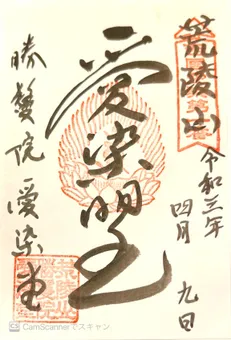 荒陵山
令和三年
四月 九日
愛染明王
勝鬘院 愛染堂
CamScannerでスキャン